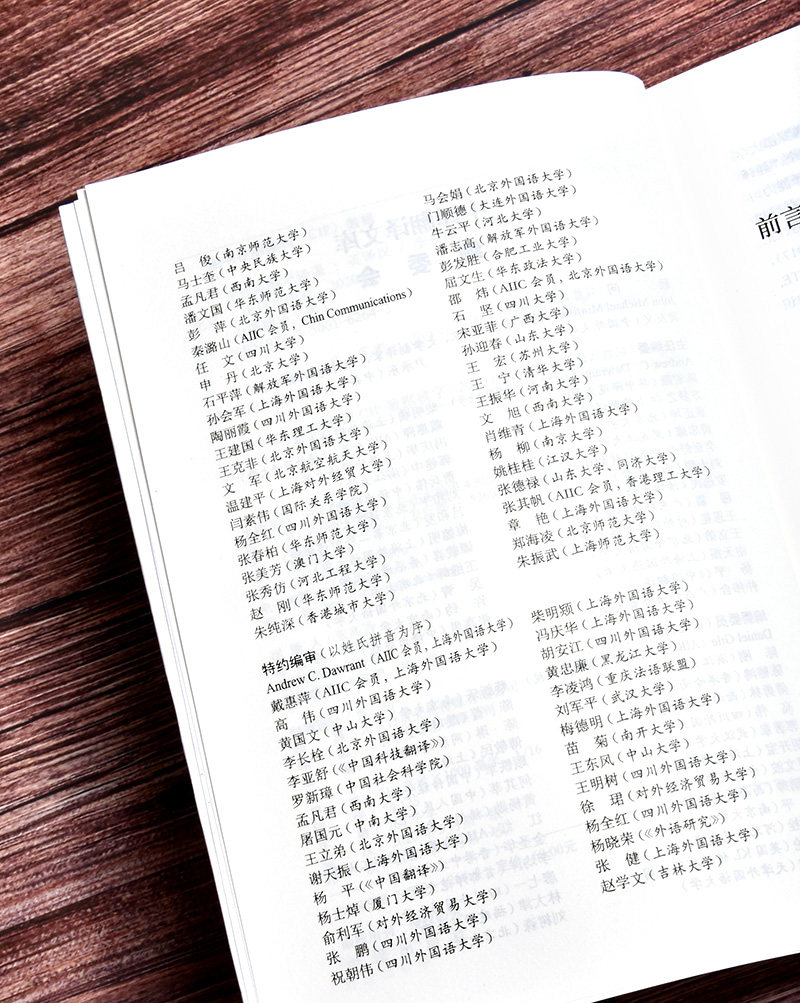 吕　俊（南京师范大学）
马士奎（中央民族大学）
孟凡君（西南大学）
潘文国（华东师范大学）
彭　萍（北京外国语大学）
秦潞山（AIIC 会员，Chin Communications）
任　文（四川大学）
申　丹（北京大学）
石平萍（解放军外国语大学）
孙会军（上海外国语大学）
陶丽霞（四川外国语大学）
王建国（华东理工大学）
王克非（北京外国语大学）
文　军（北京航空航天大学）
温建平（上海对外经贸大学）
闫素伟（国际关系学院）
杨全红（四川外国语大学）
张春柏（华东师范大学）
张美芳（澳门大学）
张秀仿（河北工程大学）
赵　刚（华东师范大学）
朱纯深（香港城市大学）
马会娟（北京外国语大学）
门顺德（大连外国语大学）
牛云平（河北大学）
潘志高（解放军外国语大学）
彭发胜（合肥工业大学）
屈文生（华东政法大学）
邵　炜（AIIC 会员，北京外国语大学）
石　坚（四川大学）
宋亚菲（广西大学）
孙迎春（山东大学）
王　宏（苏州大学）
王　宁（清华大学）
王振华（河南大学）
文　旭（西南大学）
肖维青（上海外国语大学）
杨　柳（南京大学）
姚桂桂（江汉大学）
张德禄（山东大学、同济大学）
张其帆（AIIC 会员，香港理工大学）
章　艳（上海外国语大学）
郑海凌（北京师范大学）
朱振武（上海师范大学）
特约编审（以姓氏拼音为序）
Andrew C. Dawrant（AIIC 会员，上海外国语大学）
戴惠萍（AIIC 会员，上海外国语大学）
高　伟（四川外国语大学）
黄国文（中山大学）
李长栓（北京外国语大学）
李亚舒（《中国科技翻译》）
罗新璋（中国社会科学院）
孟凡君（西南大学）
屠国元（中南大学）
王立弟（北京外国语大学）
谢天振（上海外国语大学）
杨　平（《中国翻译》）
杨士焯（厦门大学）
俞利军（对外经济贸易大学）
张　鹏（四川外国语大学）
祝朝伟（四川外国语大学）
柴明颎（上海外国语大学）
冯庆华（上海外国语大学）
胡安江（四川外国语大学）
黄忠廉（黑龙江大学）
李凌鸿（重庆法语联盟）
刘军平（武汉大学）
梅德明（上海外国语大学）
苗　菊（南开大学）
王东风（中山大学）
王明树（四川外国语大学）
徐　珺（对外经济贸易大学）
杨全红（四川外国语大学）
杨晓荣（《外语研究》）
张　健（上海外国语大学）
赵学文（吉林大学）
前言